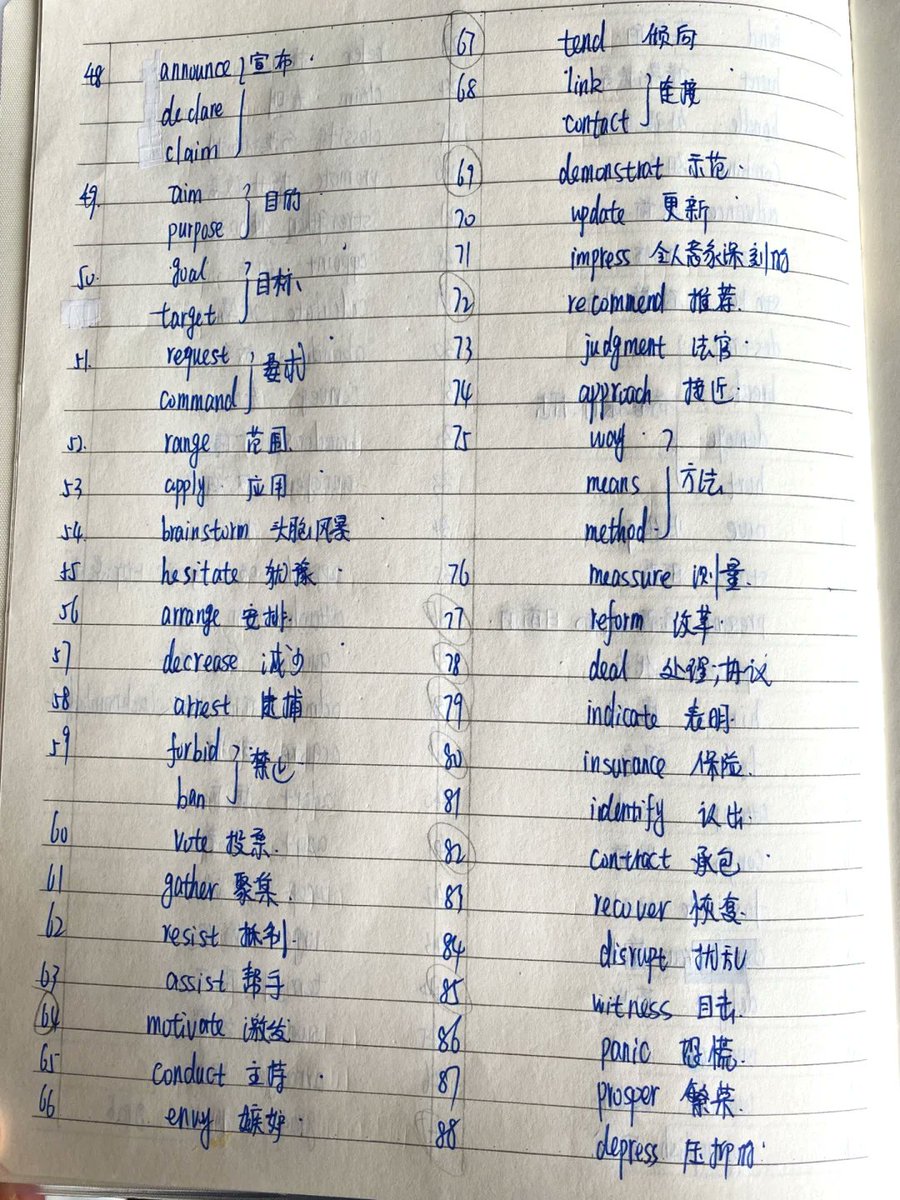 48 announce 宣布.
declare
claim
49. aim 目的
purpose
50. goal 目标
target
51. request 要求
command
52. range 范围.
53 apply. 应用
54. brainstorm 头脑风暴
55 hesitate 犹豫.
56 arrange 安排.
57 decrease 减少
58 arrest 逮捕
59 forbid 禁止.
ban
60 vote 投票.
61 gather 聚集.
62 resist 抵制.
63 assist 帮手
64 motivate 激发
65 conduct 主持.
66 envy 嫉妒.
67 tend 倾向
68 link 连接
contact
69 demonstrat 示范.
70 update 更新
71 impress 令人意象深刻的
72 recommend 推荐.
73 judgment 法官.
74 approach 接近.
75 way. 方法
means
method
76 meassure 测量.
77 reform 改革.
78 deal 处理;协议
79 indicate 表明.
80 insurance 保险.
81 identify 认出.
82 contract 承包.
83 recover 恢复.
84 disrupt 扰乱
85 witness 目击
86 panic 恐慌.
87 prosper 繁荣.
88 depress 压抑的.